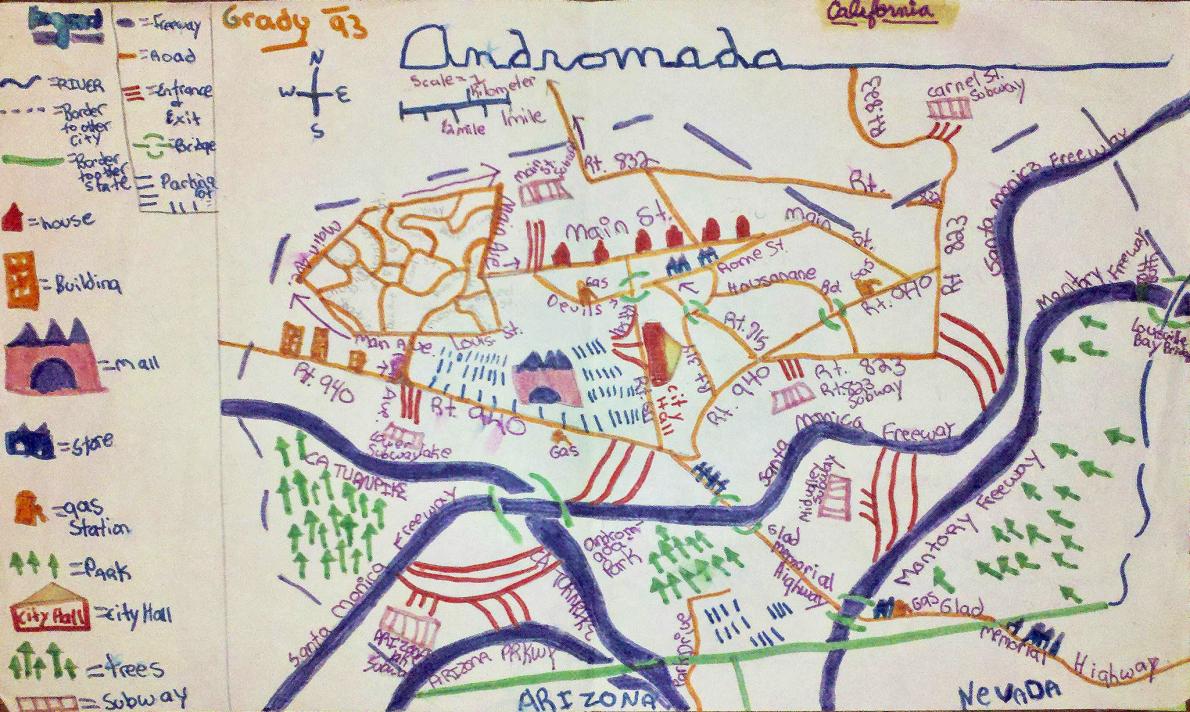 Legend
= Freeway
= Road
= RIVER
= Border
to other
City
= Border
to other
state
= Entrance
&
Exit
= Bridge
= Parking
lot
= house
= Building
= mall
= store
= gas
Station
= PARK
City Hall
= city Hall
= trees
= Subway
Grady 93
California
Andromada
N
W E
S
Scale = 1
Kilometer
1/2 mile 1mile
Rt 823
carnel St.
Subway
Rt. 832
Rt.
832
Main St.
Subway
Main Ave.
Main St.
Main
St.
Rome St.
Housanane
Rd
Gas
Gas
Devils
Rt. 940
Rt 823
Santa Monica Freeway
Mantory Freeway
Freeway
Bay Bridge
Man Ave.
Louis St.
Rt. 940
Rt. 940
Gas
City
Hall
Rt. 940
Rt. 823
Rt. 823
Subway
Subway
CA TURNPIKE
Santa Monica Freeway
Santa Monica Freeway
Midvalley
Subway
Mantory Freeway
Androm-
ada
Park
Glad
memorial
Highway
Gas Glad
memorial
Highway
CA TURNPIKE
ARIZONA
ARIZONA PRKWY
Park Drive
ARIZONA
NEVADA